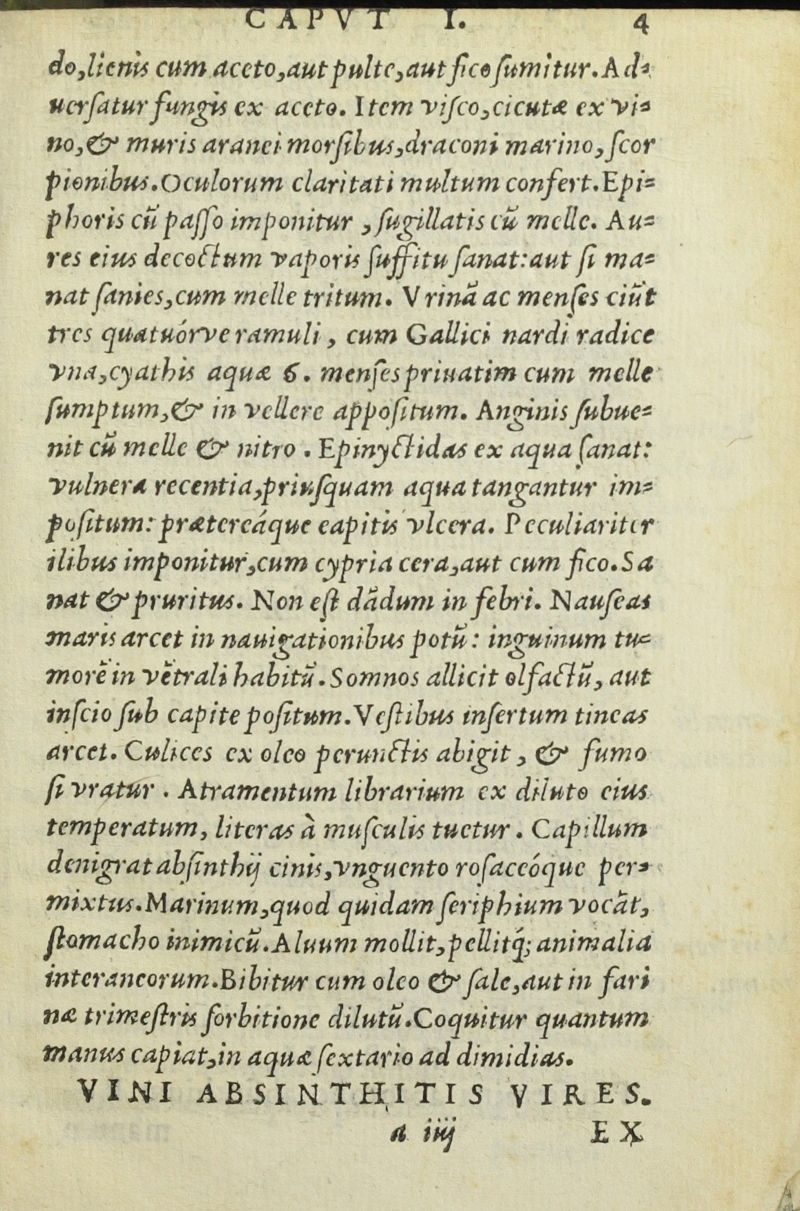 CAPVT I. 4
do,lienis cum aceto,aut pulte,aut fico ſumitur.Ad-
uerſatur fungis ex aceto. Item viſco,cicutæ ex vi-
no,& muris aranei morſibus,draconi marino,ſcor
pionibus.Oculorum claritati multum confert.Epi-
phoris cũ paſſo imponitur , ſugillatis cũ melle. Au-
res eius decoctum vaporis ſuffitu ſanat:aut ſi ma-
nat ſanies,cum melle tritum. Vrinã ac menſes ciũt
tres quatuórve ramuli , cum Gallici nardi radice
vna,cyathis aquæ 6. menſes priuatim cum melle
ſumptum,& in vellere appoſitum. Anginis ſubue-
nit cũ melle & nitro . Epinyctidas ex aqua ſanat:
vulnera recentia,priuſquam aqua tangantur im-
poſitum: prætereáque capitis vlcera. Peculiariter
ilibus imponitur,cum cypria cera,aut cum fico.Sa
nat & pruritus. Non eſt dãdum in febri. Nauſeas
maris arcet in nauigationibus potũ: inguinum tu-
morẽ in vẽtrali habitũ.Somnos allicit olfactũ, aut
inſcio ſub capite poſitum.Veſtibus inſertum tineas
arcet. Culices ex oleo perunctis abigit , & fumo
ſi vratur . Atramentum librarium ex diluto eius
temperatum, literas à muſculis tuetur. Capillum
denigrat abſinthij cinis,vnguento roſaceóque per-
mixtus.Marinum,quod quidam ſeriphium vocãt,
ſtomacho inimicũ.Aluum mollit,pellitq́; animalia
interaneorum.Bibitur cum oleo & ſale,aut in fari
næ trimeſtris ſorbitione dilutũ.Coquitur quantum
manus capiat,in aquæ ſextario ad dimidias.
VINI ABSINTHITIS VIRES.
a iiij EX